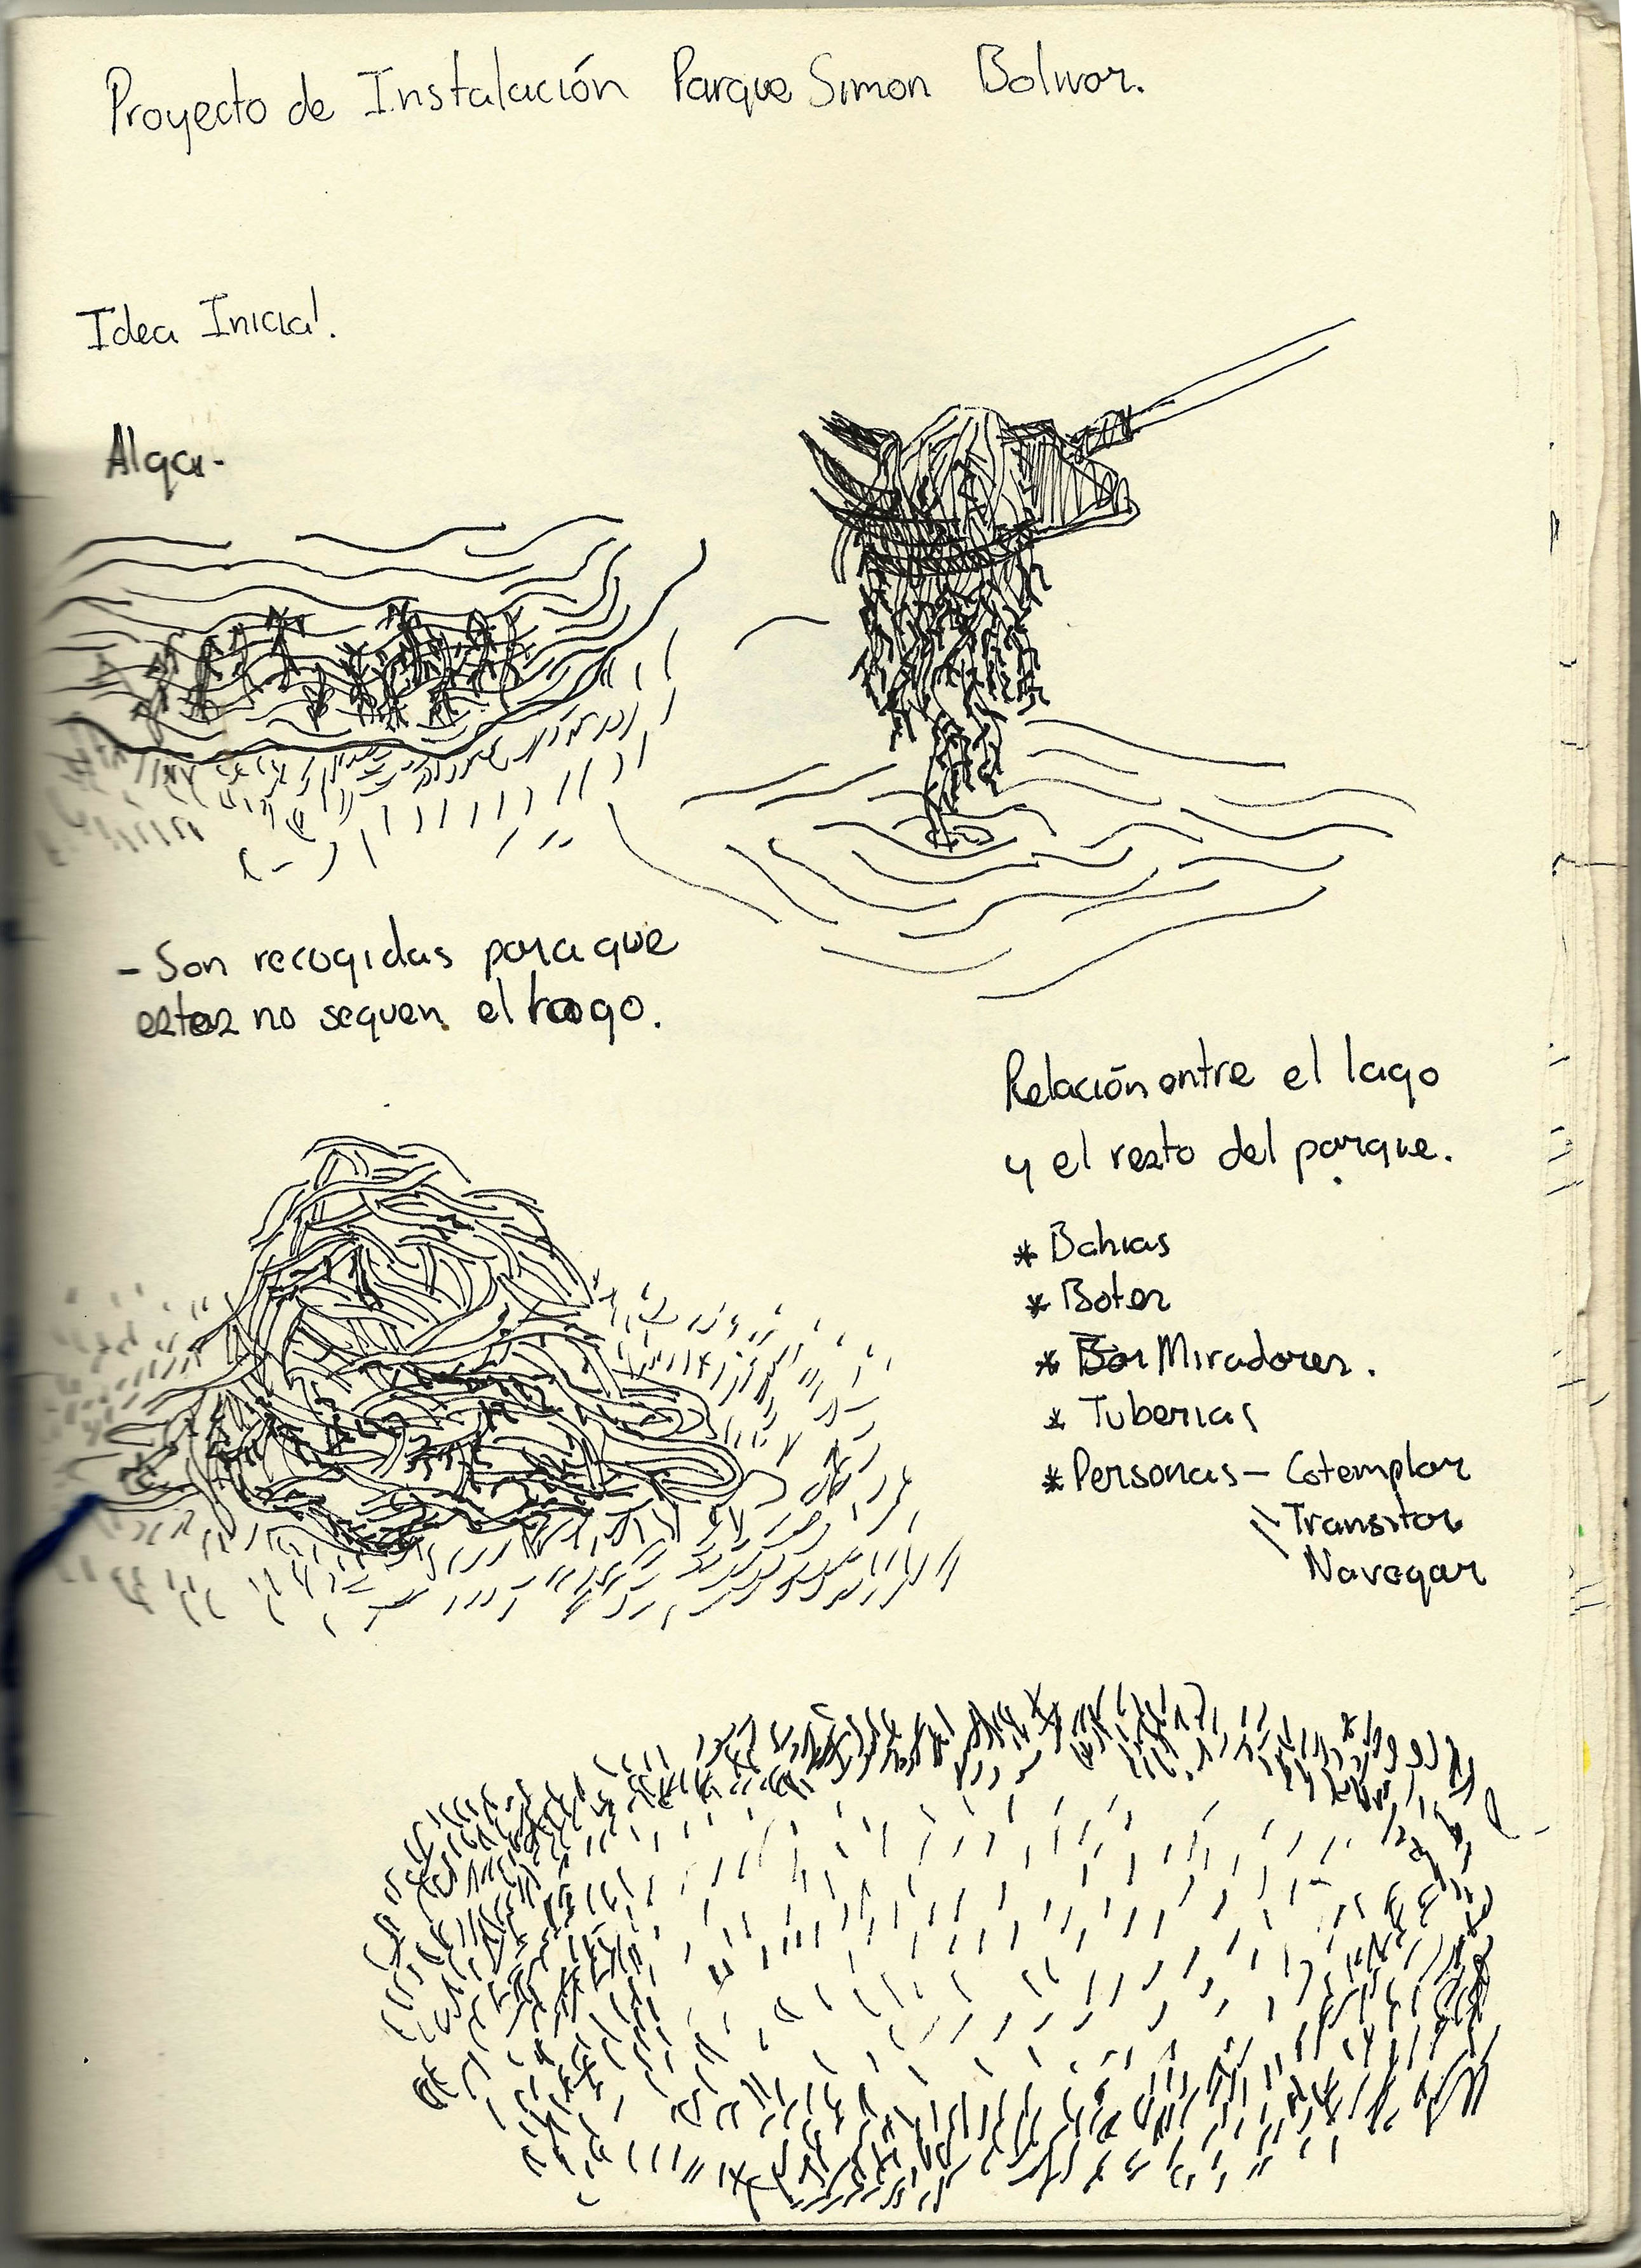 Proyecto de Instalación Parque Simon Bolivar.
Idea Inicial.
Alga-
- Son recogidas para que
estas no sequen el lago.
Relación entre el lago
y el resto del parque.
* Bahias
* Botes
* Miradores.
* Tuberias
* Personas - Cotemplar
Transitar
Navegar